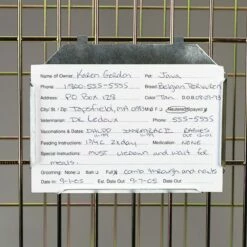 Name of Owner: Karen Gordon Pet: Java
Phone 1-800-555-5555 Breed: Belgian Tervuren
Address: PO Box 128 Color: Tan
City: Topsfield, MA Neutered/Spayed
Veterinarian: Dr. Ledoux Phone: 555-5555
Vaccinations & Dates: DHLPP Rabies
Feeding Instructions: 2x day Medication: NONE
Special Instructions: must lie down and wait for
meals.
Grooming: Nails Bath Fur comb through and nails
Date In: 9-1-05 Ex. Date Out: 9-7-05 Date Out: